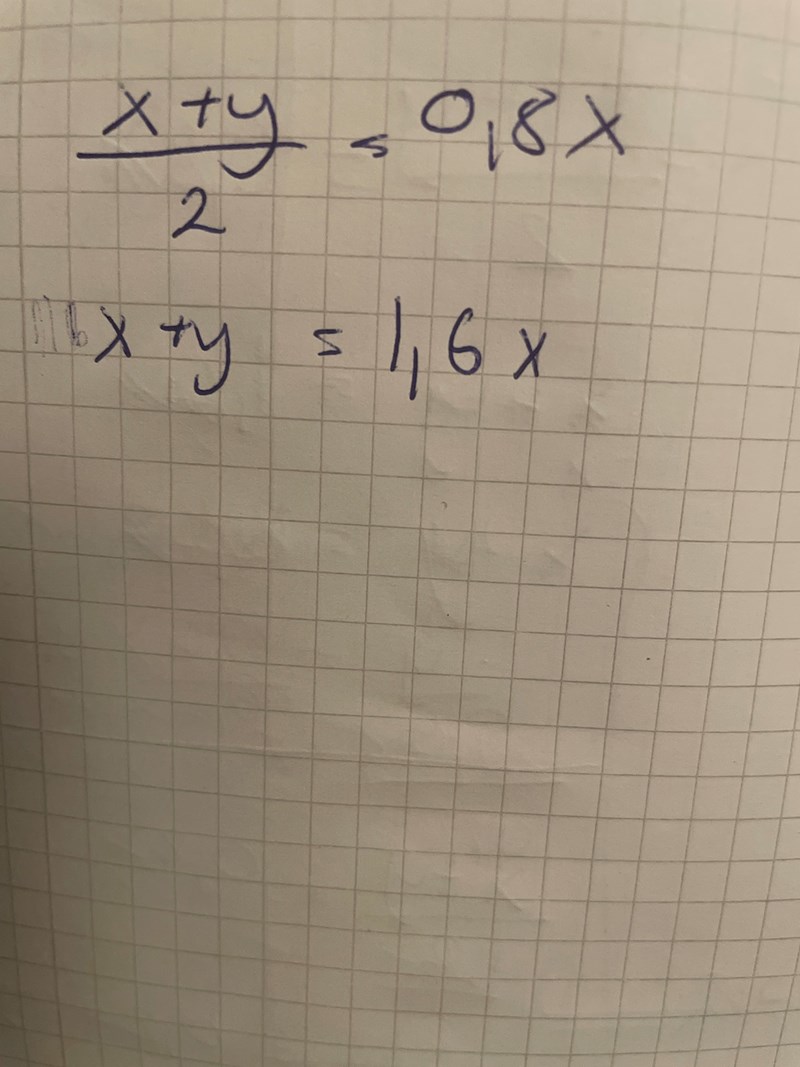 x+y
--- = 0,8x
2
x+y = 1,6x